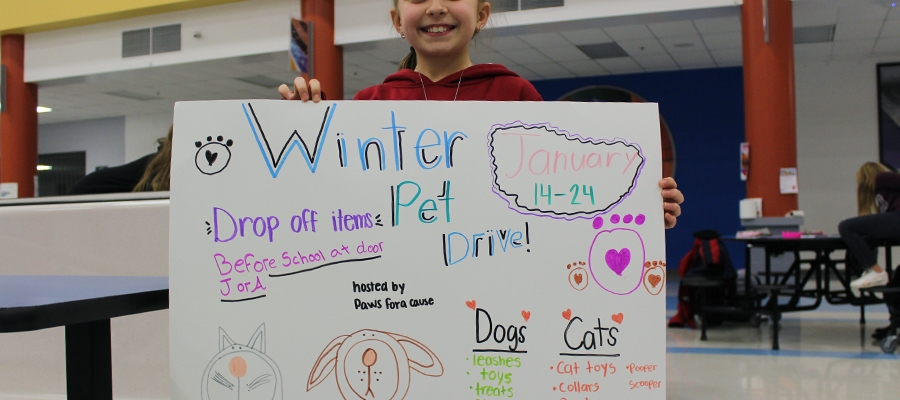 Winter
Pet
Drive!
January
14-24
Drop off items
Before School at door
J or A
hosted by
Paws for a cause
Dogs
• leashes
• toys
• treats
Cats
• Cat toys
• Collars
• Pooper
Scooper